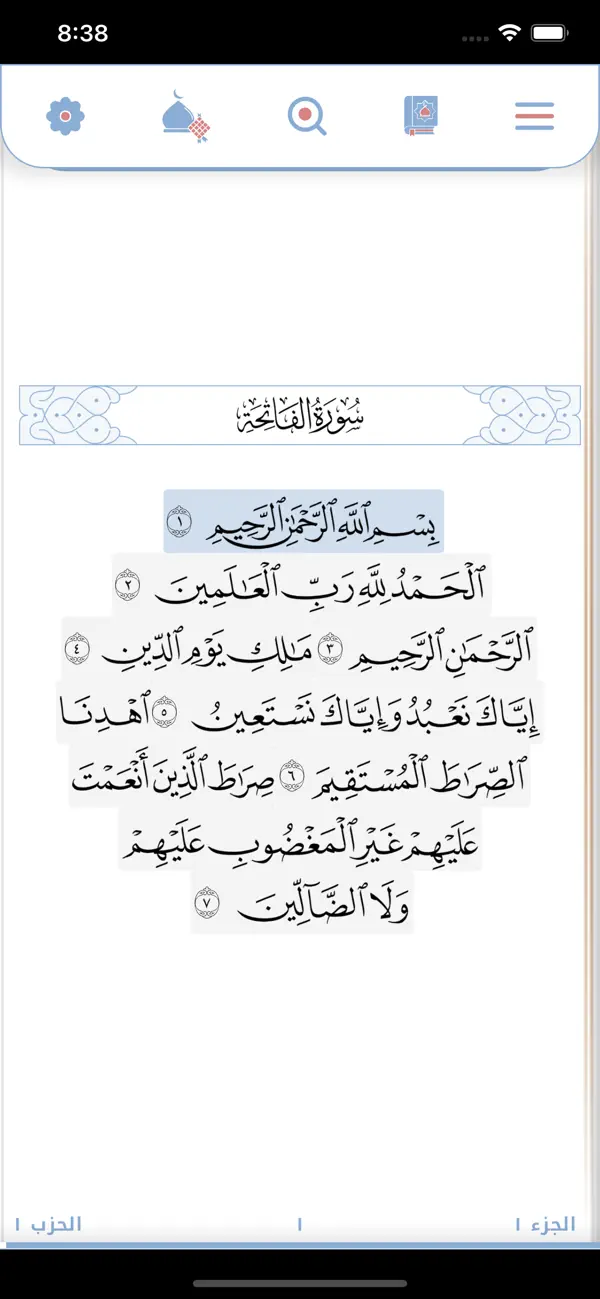 8:38
سُورَةُ الفَاتِحَةِ
بِسْمِ ٱللَّهِ ٱلرَّحْمَٰنِ ٱلرَّحِيمِ ١
ٱلْحَمْدُ لِلَّهِ رَبِّ ٱلْعَٰلَمِينَ ٢
ٱلرَّحْمَٰنِ ٱلرَّحِيمِ ٣ مَٰلِكِ يَوْمِ ٱلدِّينِ ٤
إِيَّاكَ نَعْبُدُ وَإِيَّاكَ نَسْتَعِينُ ٥ ٱهْدِنَا
ٱلصِّرَٰطَ ٱلْمُسْتَقِيمَ ٦ صِرَٰطَ ٱلَّذِينَ أَنْعَمْتَ
عَلَيْهِمْ غَيْرِ ٱلْمَغْضُوبِ عَلَيْهِمْ
وَلَا ٱلضَّآلِّينَ ٧
الجزء ١ ١ الحزب ١